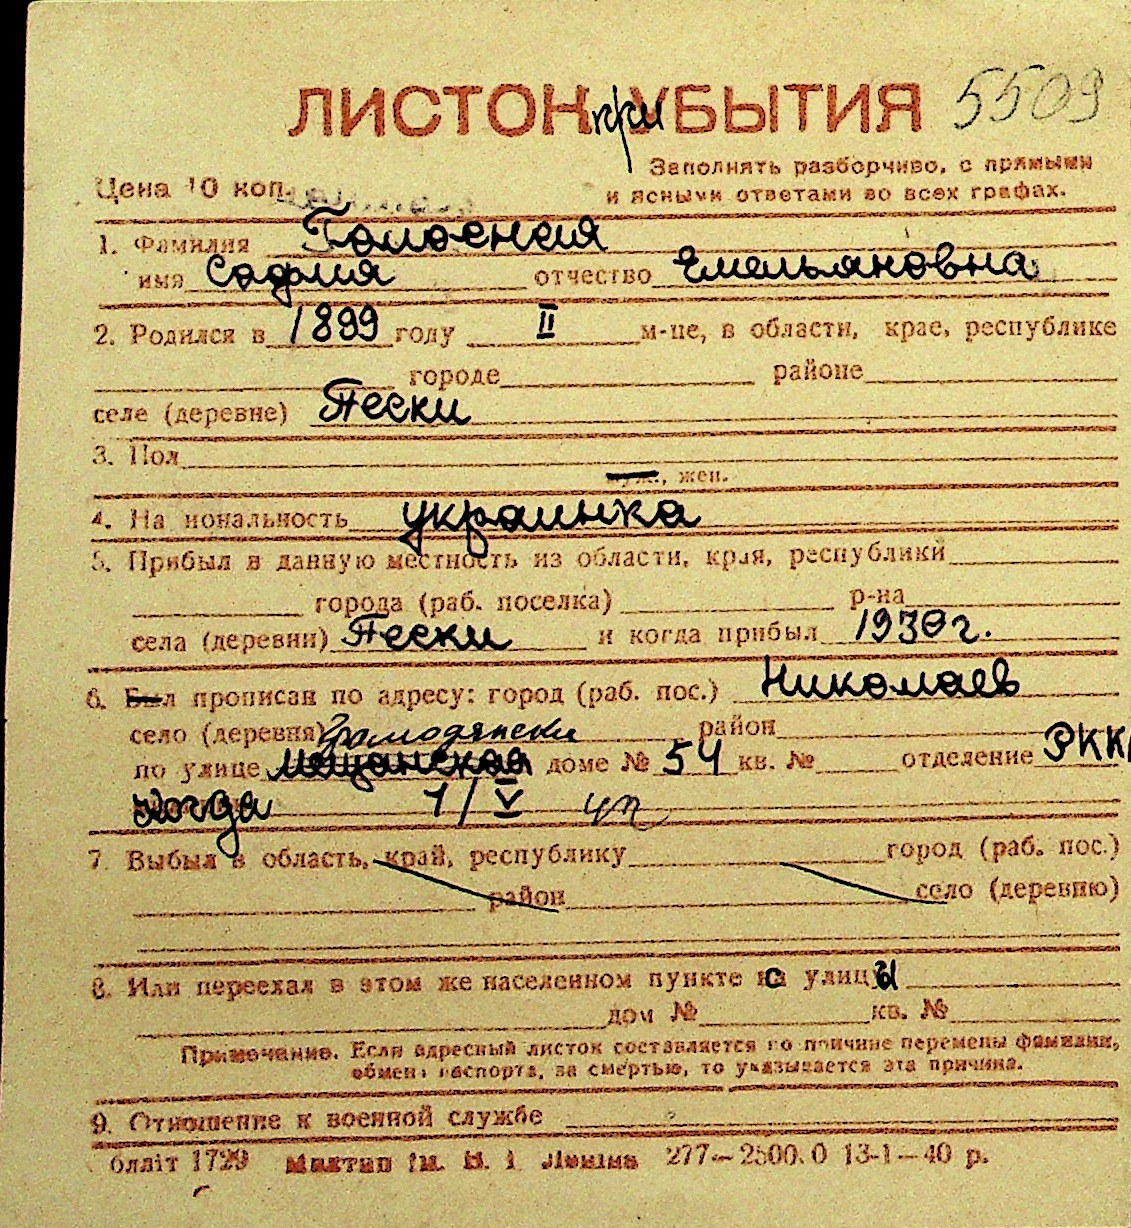 ЛИСТОК при УБЫТИЯ 5509
Заполнять разборчиво, с прямыми
Цена 10 коп. и ясными ответами во всех графах.
1. Фамилия
имя София отчество Емельяновна
2. Родился в 1899 году II м-це, в области, крае, республике
городе районе
селе (деревне) Пески
3. Пол
муж., жен.
4. Национальность украинка
5. Прибыл в данную местность из области, края, республики
города (раб. поселка) р-на
села (деревни) Пески и когда прибыл 1930 г.
6. Был прописан по адресу: город (раб. пос.) Николаев
село (деревня) Громодянски район
по улице Мещанская доме № 54 кв. № отделение РКК
когда 1/V
7. Выбыл в область, край, республику город (раб. пос.)
район село (деревню)
8. Или переехал в этом же населенном пункте с улицы
дом № кв. №
Примечание. Если адресный листок составляется по причине перемены фамилии,
обмена паспорта, за смертью, то указывается эта причина.
9. Отношение к военной службе
блліт 1729 ім. В. І. Леніна 277—2500.0 13-1—40 р.